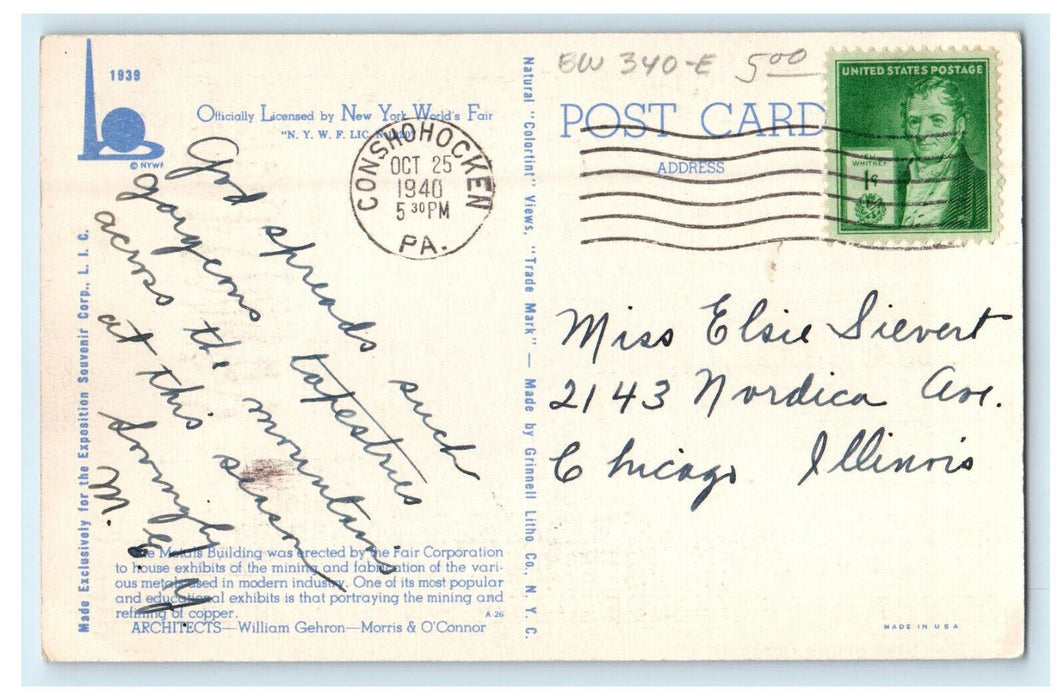 1939
© NYWF
Officially Licensed by New York World's Fair
"N. Y. W. F. LIC.
CONSHOHOCKEN
OCT 25
1940
5 30 PM
PA.
God spreads such
gorgeous tapestries
across the mountains
at this season
Lovingly
M.
Made Exclusively for the Exposition Souvenir Corp., L. I. C.
The Metals Building was erected by the Fair Corporation
to house exhibits of the mining and fabrication of the vari-
ous metals used in modern industry. One of its most popular
and educational exhibits is that portraying the mining and
refining of copper.
A 26
ARCHITECTS—William Gehron—Morris & O'Connor
Natural "Colortint" Views, "Trade Mark" — Made by Grinnell Litho Co., N. Y. C.
BW 340-E 5.00
POST CARD
ADDRESS
UNITED STATES POSTAGE
WHITNEY
1¢
Miss Elsie Sievert
2143 Nordica Ave.
Chicago Illinois
MADE IN USA